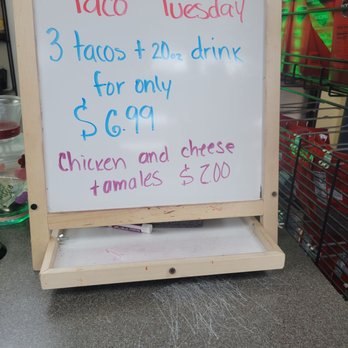 Taco Tuesday
3 tacos + 20oz drink
for only
$6.99
Chicken and cheese
tamales $2.00